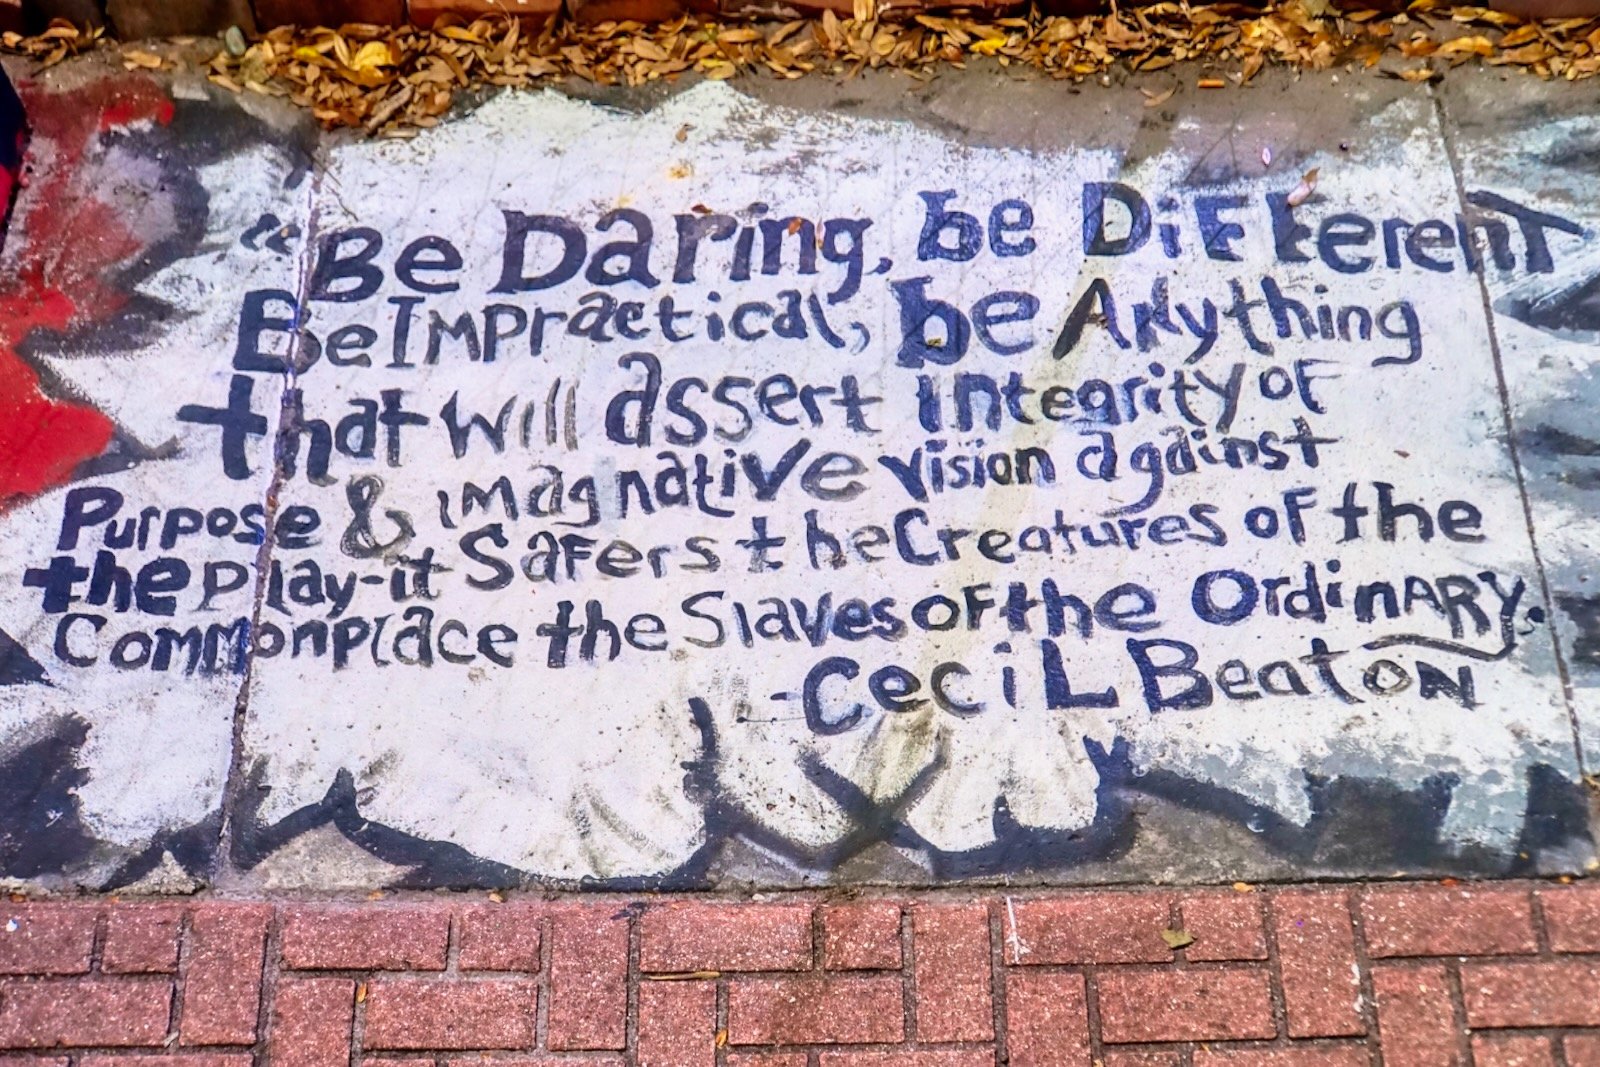 “Be Daring, be DiFFerenT
Be Impractical, be Anything
that will assert integrity of
Purpose & imagnative vision against
the play-it Safers the Creatures of the
Commonplace the Slaves of the OrdinARY.
-CeciL Beaton